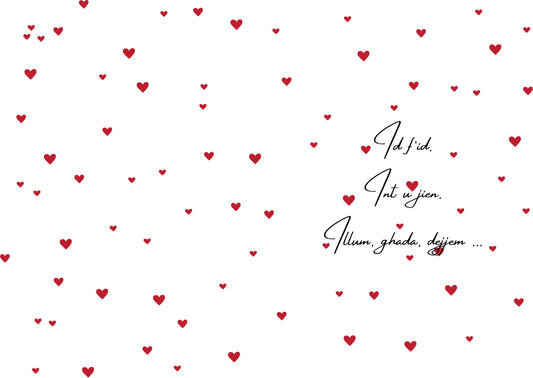 Id f'id.
Int u jien.
Illum, ghada, dejjem ...